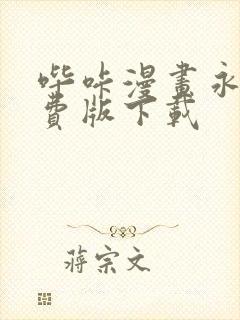 哔咔漫畫永
費版下載
蔣宗文